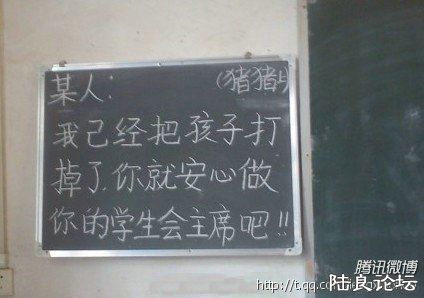 某人:
(猪猪
我已经把孩子打
掉了,你就安心做
你的学生会主席吧!!
腾讯微博
http://t.qq.co
陆良论坛